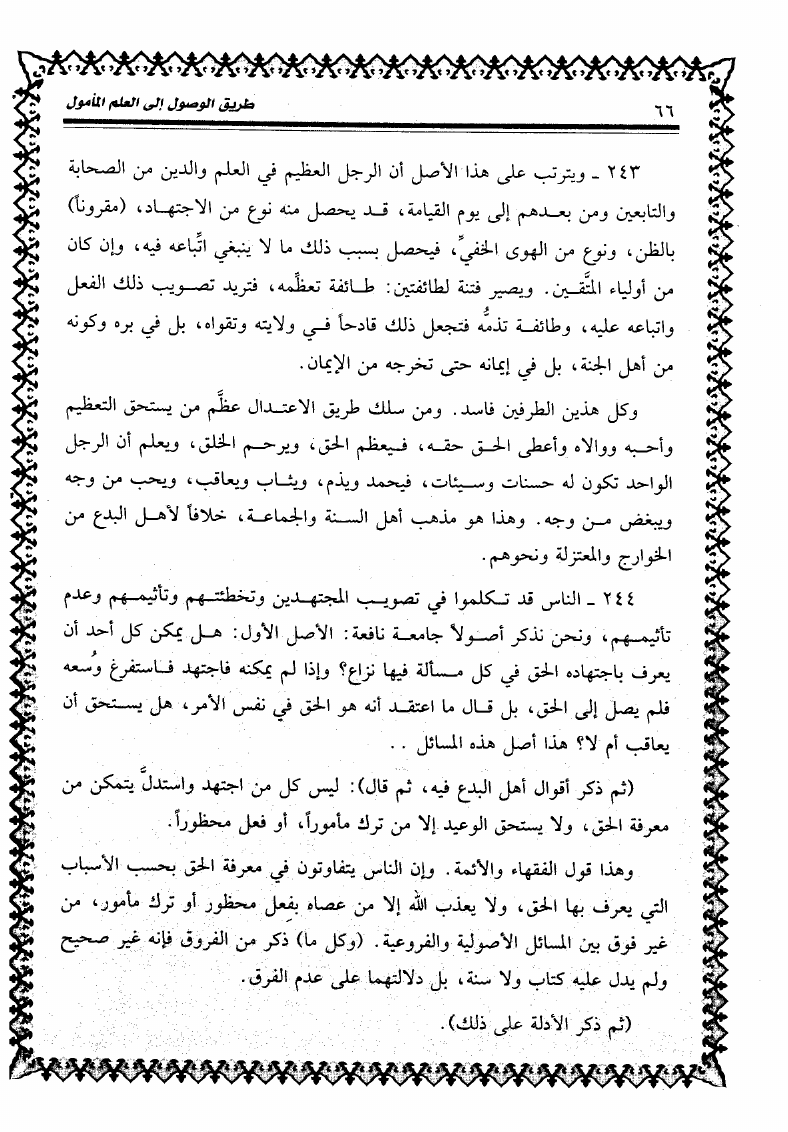 ٦٦
طريق الوصول إلى العلم المأمول
٢٤٣ ـ ويترتب على هذا الأصل أن الرجل العظيم في العلم والدين من الصحابة
والتابعين ومن بعدهم إلى يوم القيامة، قد يحصل منه نوع من الاجتهاد، (مقروناً)
بالظن، ونوع من الهوى الخفيِّ، فيحصل بسبب ذلك ما لا ينبغي اتِّباعه فيه، وإن كان
من أولياء المتَّقين. ويصير فتنة لطائفتين: طائفة تعظِّمه، فتريد تصويب ذلك الفعل
واتباعه عليه، وطائفة تذمُّه فتجعل ذلك قادحاً في ولايته وتقواه، بل في بره وكونه
من أهل الجنة، بل في إيمانه حتى تخرجه من الإيمان.
وكل هذين الطرفين فاسد. ومن سلك طريق الاعتدال عظَّم من يستحق التعظيم
وأحبه ووالاه وأعطى الحق حقه، فيعظم الحق، ويرحم الخلق، ويعلم أن الرجل
الواحد تكون له حسنات وسيئات، فيحمد ويذم، ويثاب ويعاقب، ويحب من وجه
ويبغض من وجه. وهذا هو مذهب أهل السنة والجماعة، خلافاً لأهل البدع من
الخوارج والمعتزلة ونحوهم.
٢٤٤ ـ الناس قد تكلموا في تصويب المجتهدين وتخطئتهم وتأثيمهم وعدم
تأثيمهم، ونحن نذكر أصولاً جامعة نافعة: الأصل الأول: هل يمكن كل أحد أن
يعرف باجتهاده الحق في كل مسألة فيها نزاع؟ وإذا لم يمكنه فاجتهد فاستفرغ وُسعه
فلم يصل إلى الحق، بل قال ما اعتقد أنه هو الحق في نفس الأمر، هل يستحق أن
يعاقب أم لا؟ هذا أصل هذه المسائل . .
(ثم ذكر أقوال أهل البدع فيه، ثم قال): ليس كل من اجتهد واستدلَّ يتمكن من
معرفة الحق، ولا يستحق الوعيد إلا من ترك مأموراً، أو فعل محظوراً.
وهذا قول الفقهاء والأئمة. وإن الناس يتفاوتون في معرفة الحق بحسب الأسباب
التي يعرف بها الحق، ولا يعذب الله إلا من عصاه بفعل محظور أو ترك مأمور، من
غير فوق بين المسائل الأصولية والفروعية. (وكل ما) ذكر من الفروق فإنه غير صحيح
ولم يدل عليه كتاب ولا سنة، بل دلالتهما على عدم الفرق.
(ثم ذكر الأدلة على ذلك).